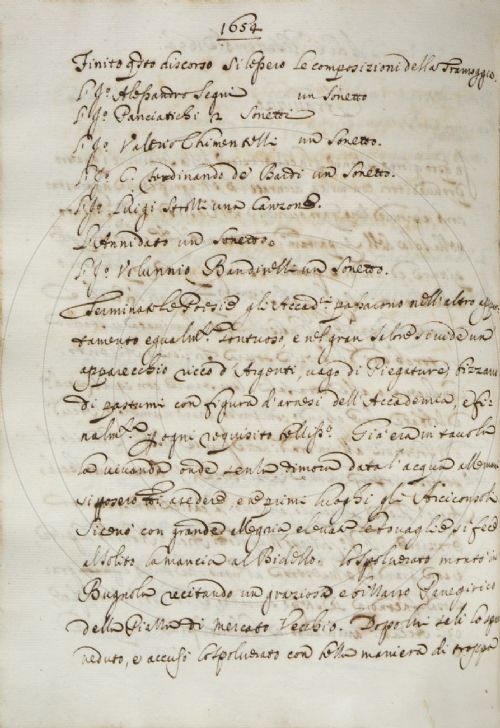 1654
Finito q.to discorso si lessero le composizioni della Tramoggia.
Il Sig.o Alessandro Segni un Sonetto
Il Sig.o Panciatichi 2 Sonetti
Il Sig.o Valerio Chimentelli un Sonetto.
Il Sig.o C. Ferdinando de' Bardi un Sonetto.
Il Sig.o Luigi Strozzi una Canzone.
L'Annidato un Sonetto.
Il Sig.o Volunnio Bandinelli un Sonetto.
Terminate le Poesie gli Accad.i passarono nell'altro appar
tamento egualm.te sontuoso, e nel gran Salone si vide un
apparecchio ricco d'Argenti, vago di Piegature, bizzarro
di pastumi con figura d'arnesi dell'Accademia, e fi-
nalm.te p ogni requisito belliss.o Già era in tavola
la vivanda onde senza dimora data l'acqua alle mani
si posero a sedere, e ne primi luoghi gli Arciconsoli
Si cenò con grande allegria, e levate le tovaglie si fece
al solito la mancia al Bidello. lo Spolverato montò in
Bugnola recitando un grazioso e bizzarro Panegirico
della Pialla di Mercato Vecchio. Dopo
veduto, e accusò lo Spolverato con bella maniera di troppa